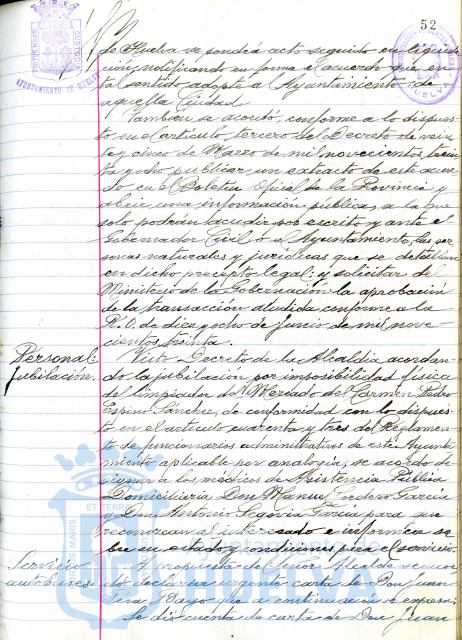 52
AYUNTAMIENTO DE HUELVA
de Huelva se pondrá acto seguido en liquida-
ción, notificando en forma el acuerdo que en
tal sentido adopte el Ayuntamiento de
aquella Ciudad.
También se acordó, conforme a lo dispues-
to en el artículo tercero del Decreto de vein-
te y cinco de Marzo de mil novecientos trein-
ta y ocho publicar un extracto de este acuer-
do en el Boletín Oficial de la Provincia y
abrir una información pública, a la que
solo podrán acudir por escrito y ante el
Gobernador Civil o el Ayuntamiento, las per-
sonas naturales y jurídicas que se detallan
en dicho precepto legal; y solicitar del
Ministerio de la Gobernación la aprobación
de la transacción aludida conforme a la
R.O. de diez y ocho de Junio de mil nove-
cientos treinta.
Personal:
Jubilación.
Visto Decreto de la Alcaldía acordan-
do la jubilación por imposibilidad física
del limpiador del Mercado del Carmen Pedro
Espina Sánchez, de conformidad con lo dispues-
to en el artículo cuarenta y tres del Reglamen-
to de funcionarios administrativos de este Ayunta-
miento aplicable por analogía, se acordó de-
signar a los médicos de Asistencia Pública
Domiciliaria Don Manuel Cordero García
y Don Antonio Segovia García para que
reconozcan al interesado e informen so-
bre su estado y condiciones para el servicio.
Servicio
autobuses
A propuesta del Señor Alcalde se acor-
dó declarar urgente carta de Don Juan
que a continuación se expresa:
Se dió cuenta de carta de Don Juan